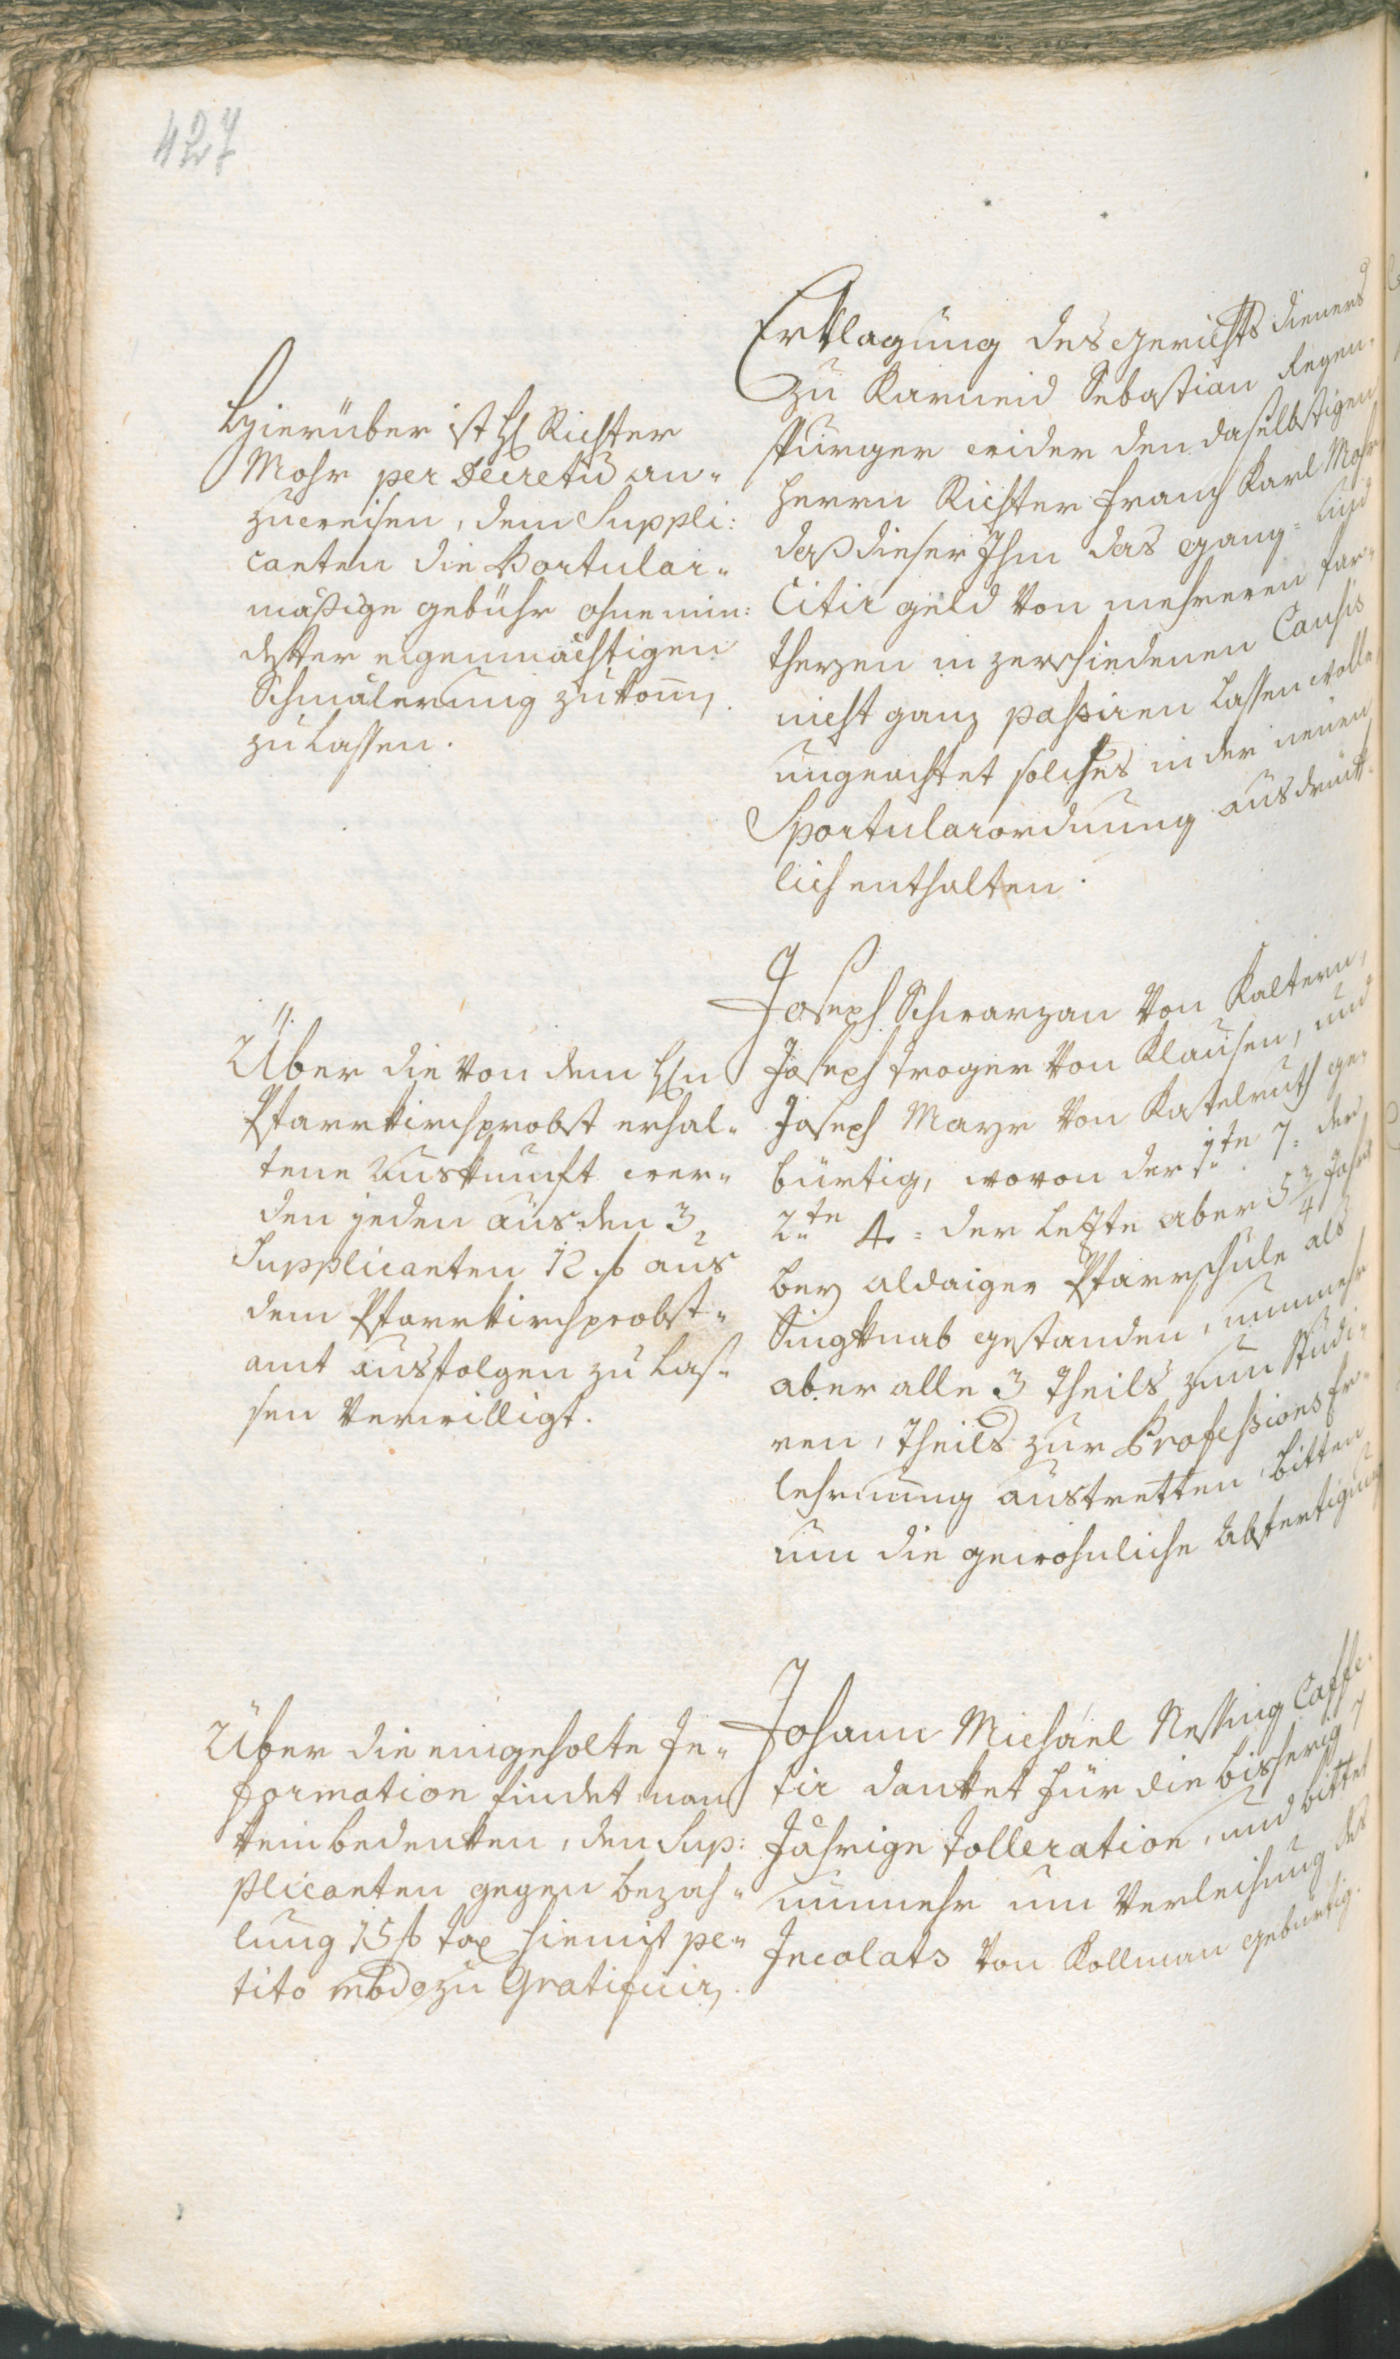 427
Erklagung des gerichts dieners
zu Karneid Sebastian Regen-
spurger wider den daselbstigen
Herrn Richter Franz Karl Mohr
daß dieser Ihm das gang- und
Citir geld von mehreren par-
theyen in zerschiedenen Causis
nicht ganz passiren lassen wolle
ungeachtet solches in der neuen
Sportularordnung ausdruk-
lich enthalten.
Hierüber ist H. Richter
Mohr per Decretũ an-
zuweisen, dem Suppli:
canten die Sportular-
mäßige gebühr ohne min:
dester eigenmächtigen
Schmälerung zukom̃
zu lassen.
Joseph Schwarzan von Kaltern,
Joseph Troger von Klausen, und
Joseph Mayr von Kastelruth ge-
bürtig, wovon der 1te 7: der
2te 4: der letzte aber 5 3/4 Jahr
bey aldaiger Pfarrschule als
Singknab gestanden, nunmehr
aber alle 3 theils zum Studi-
ren, theils zur Professions Er-
lehrnung austretten, bitten
um die gewohnliche Abfertigung
Über die von dem Hn
Pfarrkirchprobst erhal-
tene Auskunft wer-
den jeden aus den 3
Supplicanten 12 f aus
dem Pfarrkirchprobst-
amt ausfolgen zu las-
sen verwilligt.
Johann Michael Nessing Caffe-
sir danket für die bisherig 7
Jährige Tolleration, und bittet
nunmehr um Verleihung des
Incolats von Kollman gebürtig.
Über die eingeholte In-
formation findet man
kein bedenken, den Sup:
plicanten gegen bezah-
lung 15 f tax hiemit pe-
tito modo zu Gratificir.